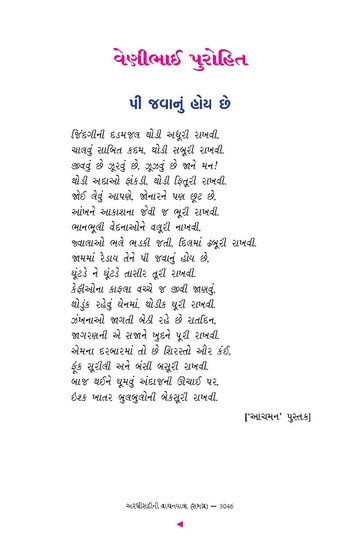 વેણીભાઈ પુરોહિત
પી જવાનું હોય છે
જિંદગીની દડમજલ થોડી અધૂરી રાખવી,
ચાલવું સાબિત કદમ, થોડી સબૂરી રાખવી.
જીવવું છે ઝૂરવું છે, ઝૂઝવું છે જાને મન!
થોડી અદાઓ ફાંકડી, થોડી ફિતૂરી રાખવી.
જોઈ લેવું આપણે, જોનારને પણ છૂટ છે,
આંખને આકાશના જેવી જ ભૂરી રાખવી.
ભાનભૂલી વેદનાઓને વલૂરી નાખવી,
જ્વાલાઓ ભલે ભડકી જતી, દિલમાં ઢબૂરી રાખવી.
જામમાં રેડાય તેને પી જવાનું હોય છે,
ઘૂંટડે ને ઘૂંટડે તાસીર તૂરી રાખવી.
કેફીઓના કાફલા વચ્ચે જ જીવી જાણવું,
થોડુંક રહેવું ઘેનમાં, થોડીક ઘૂરી રાખવી.
ઝંખનાઓ જાગતી બેઠી રહે છે રાતદિન,
જાગરણની એ સજાને ખુદને પૂરી રાખવી.
એમના દરબારમાં તો છે શિરસ્તો ઔર કંઈ,
ફૂંક સૂરીલી અને બંસી બસૂરી રાખવી.
બાજ થઈને ઘૂમવું અંદાજની ઊંચાઈ પર,
ઇશ્ક ખાતર બુલબુલોની બેકસૂરી રાખવી.
['આચમન' પુસ્તક]
અરધીસદીની વાચનયાત્રા (સમગ્ર) — 3046